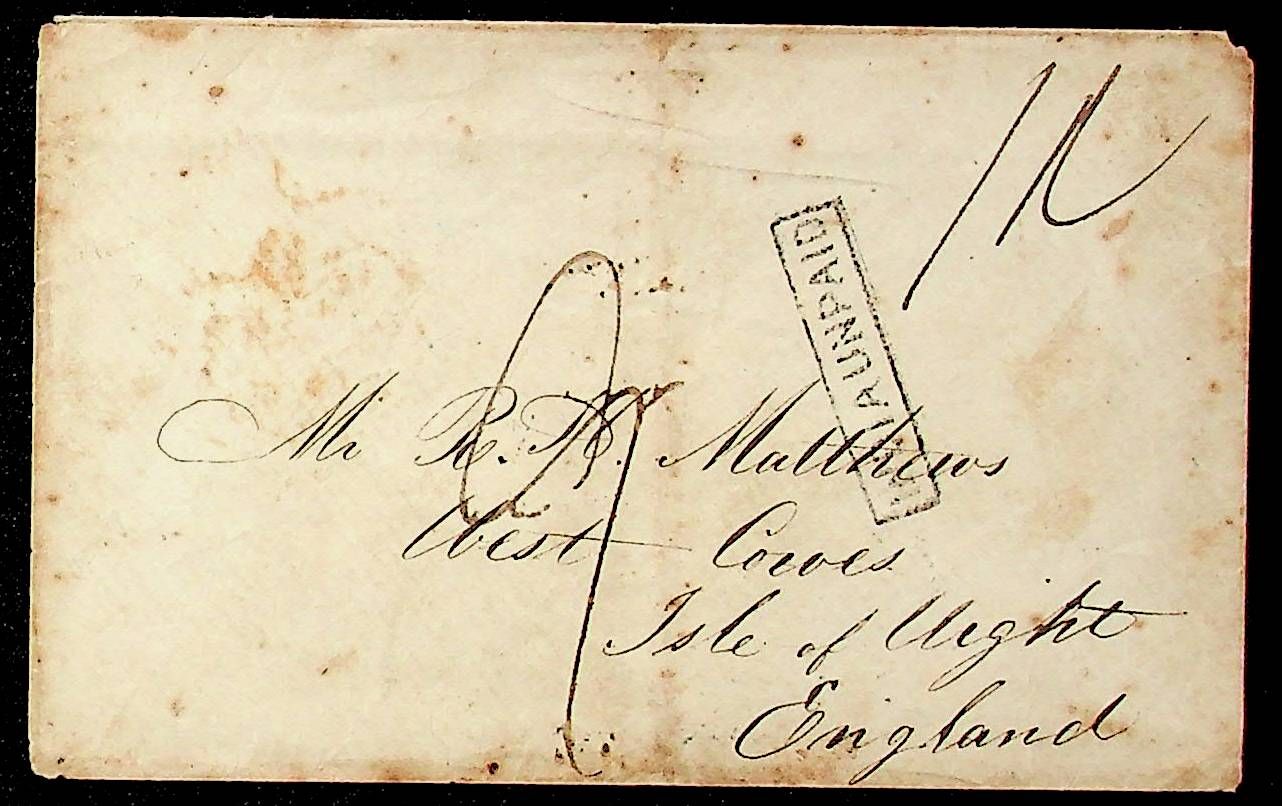 UNPAID
Mr R. H. Matthews
West Cowes
Isle of Wight
England